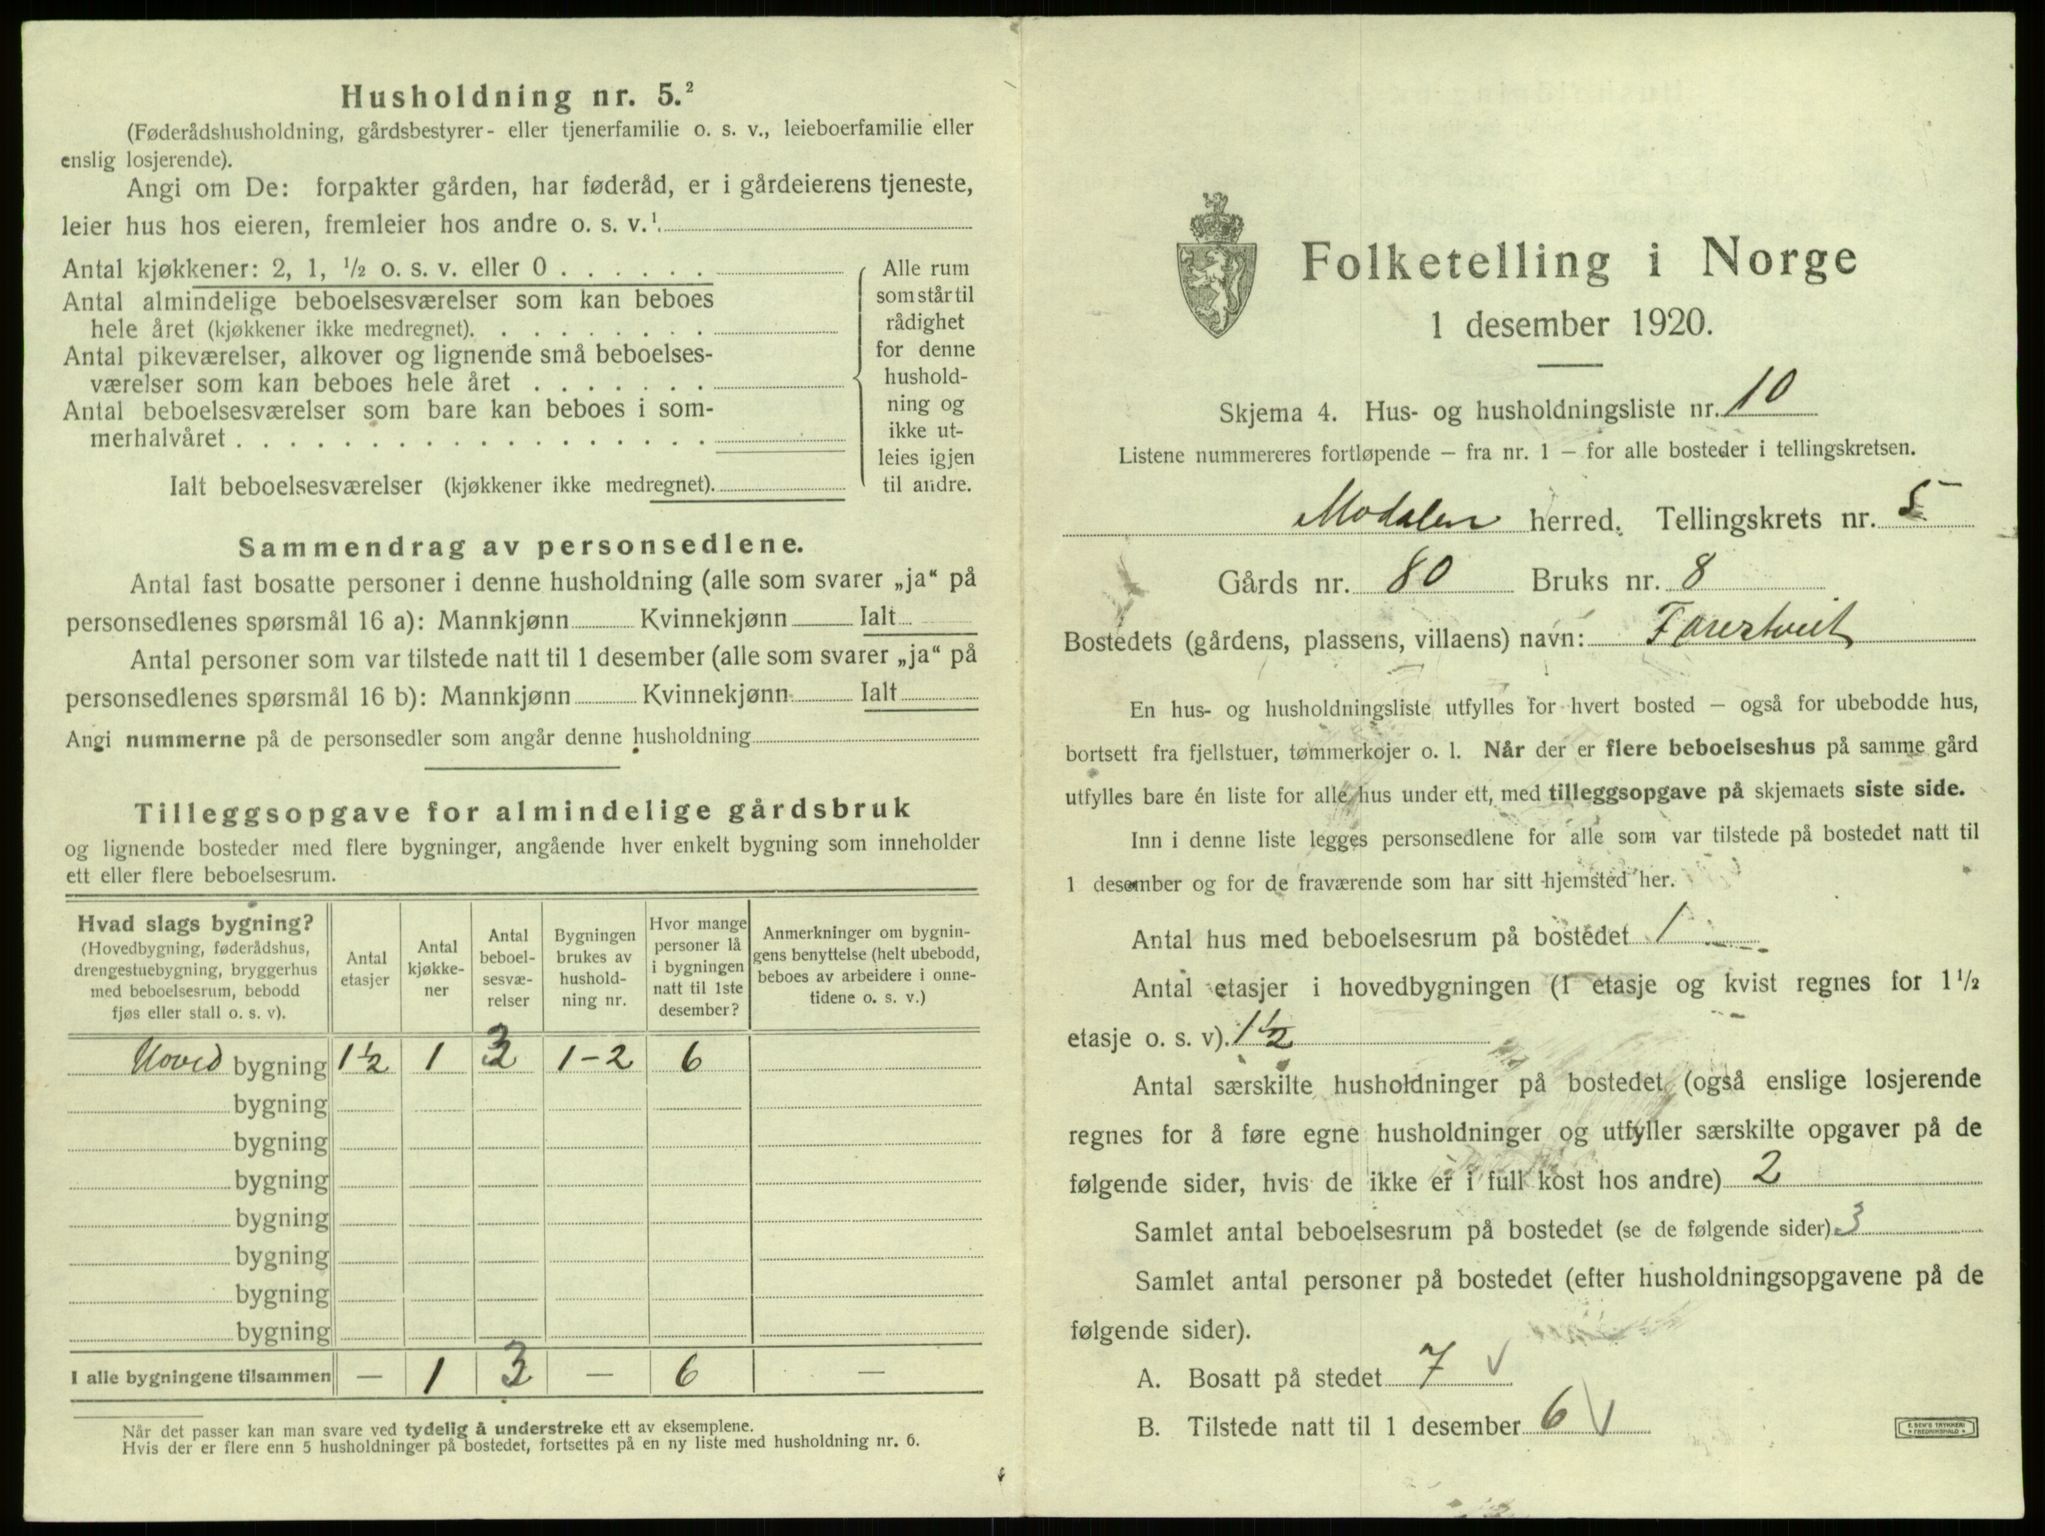 Husholdning nr. 5.²
(Føderådshusholdning, gårdsbestyrer- eller tjenerfamilie o. s. v., leieboerfamilie eller
enslig losjerende).
Angi om De: forpakter gården, har føderåd, er i gårdeierens tjeneste,
leier hus hos eieren, fremleier hos andre o. s. v.¹
Antal kjøkkener: 2, 1, ½ o. s. v. eller 0 . . . . . .
Antal almindelige beboelsesværelser som kan beboes
hele året (kjøkkener ikke medregnet). . . . . . . . .
Antal pikeværelser, alkover og lignende små beboelses-
værelser som kan beboes hele året . . . . . . .
Antal beboelsesværelser som bare kan beboes i som-
merhalvåret . . . . . . . . . . . . . . . . . .
Ialt beboelsesværelser (kjøkkener ikke medregnet).
Alle rum
som står til
rådighet
for denne
hushold-
ning og
ikke ut-
leies igjen
til andre.
Sammendrag av personsedlene.
Antal fast bosatte personer i denne husholdning (alle som svarer „ja“ på
personsedlenes spørsmål 16 a): Mannkjønn Kvinnekjønn Ialt
Antal personer som var tilstede natt til 1 desember (alle som svarer „ja“ på
personsedlenes spørsmål 16 b): Mannkjønn Kvinnekjønn Ialt
Angi nummerne på de personsedler som angår denne husholdning
Tilleggsopgave for almindelige gårdsbruk
og lignende bosteder med flere bygninger, angående hver enkelt bygning som inneholder
ett eller flere beboelsesrum.
Hvad slags bygning?
(Hovedbygning, føderådshus,
drengestuebygning, bryggerhus
med beboelsesrum, bebodd
fjøs eller stall o. s. v).
Antal
etasjer
Antal
kjøkke-
ner
Antal
beboel-
sesvæ-
relser
Bygningen
brukes av
hushold-
ning nr.
Hvor mange
personer lå
i bygningen
natt til 1ste
desember?
Anmerkninger om bygnin-
gens benyttelse (helt ubebodd,
beboes av arbeidere i onne-
tidene o. s. v.)
Hoved bygning 1½ 1 3 1-2 6
bygning
bygning
bygning
bygning
bygning
bygning
bygning
I alle bygningene tilsammen — 1 3 — 6 —
Når det passer kan man svare ved tydelig å understreke ett av eksemplene.
Hvis der er flere enn 5 husholdninger på bostedet, fortsettes på en ny liste med husholdning nr. 6.
Folketelling i Norge
1 desember 1920.
Skjema 4. Hus- og husholdningsliste nr. 10
Listene nummereres fortløpende – fra nr. 1 – for alle bosteder i tellingskretsen.
Modalen herred. Tellingskrets nr. 5
Gårds nr. 80 Bruks nr. 8
Bostedets (gårdens, plassens, villaens) navn: Farestveit
En hus- og husholdningsliste utfylles for hvert bosted – også for ubebodde hus,
bortsett fra fjellstuer, tømmerkojer o. l. Når der er flere beboelseshus på samme gård
utfylles bare én liste for alle hus under ett, med tilleggsopgave på skjemaets siste side.
Inn i denne liste legges personsedlene for alle som var tilstede på bostedet natt til
1 desember og for de fraværende som har sitt hjemsted her.
Antal hus med beboelsesrum på bostedet 1
Antal etasjer i hovedbygningen (1 etasje og kvist regnes for 1½
etasje o. s. v). 1½
Antal særskilte husholdninger på bostedet (også enslige losjerende
regnes for å føre egne husholdninger og utfyller særskilte opgaver på de
følgende sider, hvis de ikke er i full kost hos andre) 2
Samlet antal beboelsesrum på bostedet (se de følgende sider) 3
Samlet antal personer på bostedet (efter husholdningsopgavene på de
følgende sider).
A. Bosatt på stedet 7 √
B. Tilstede natt til 1 desember 6 √
E. SEM'S TRYKKERI
FREDRIKSHALD